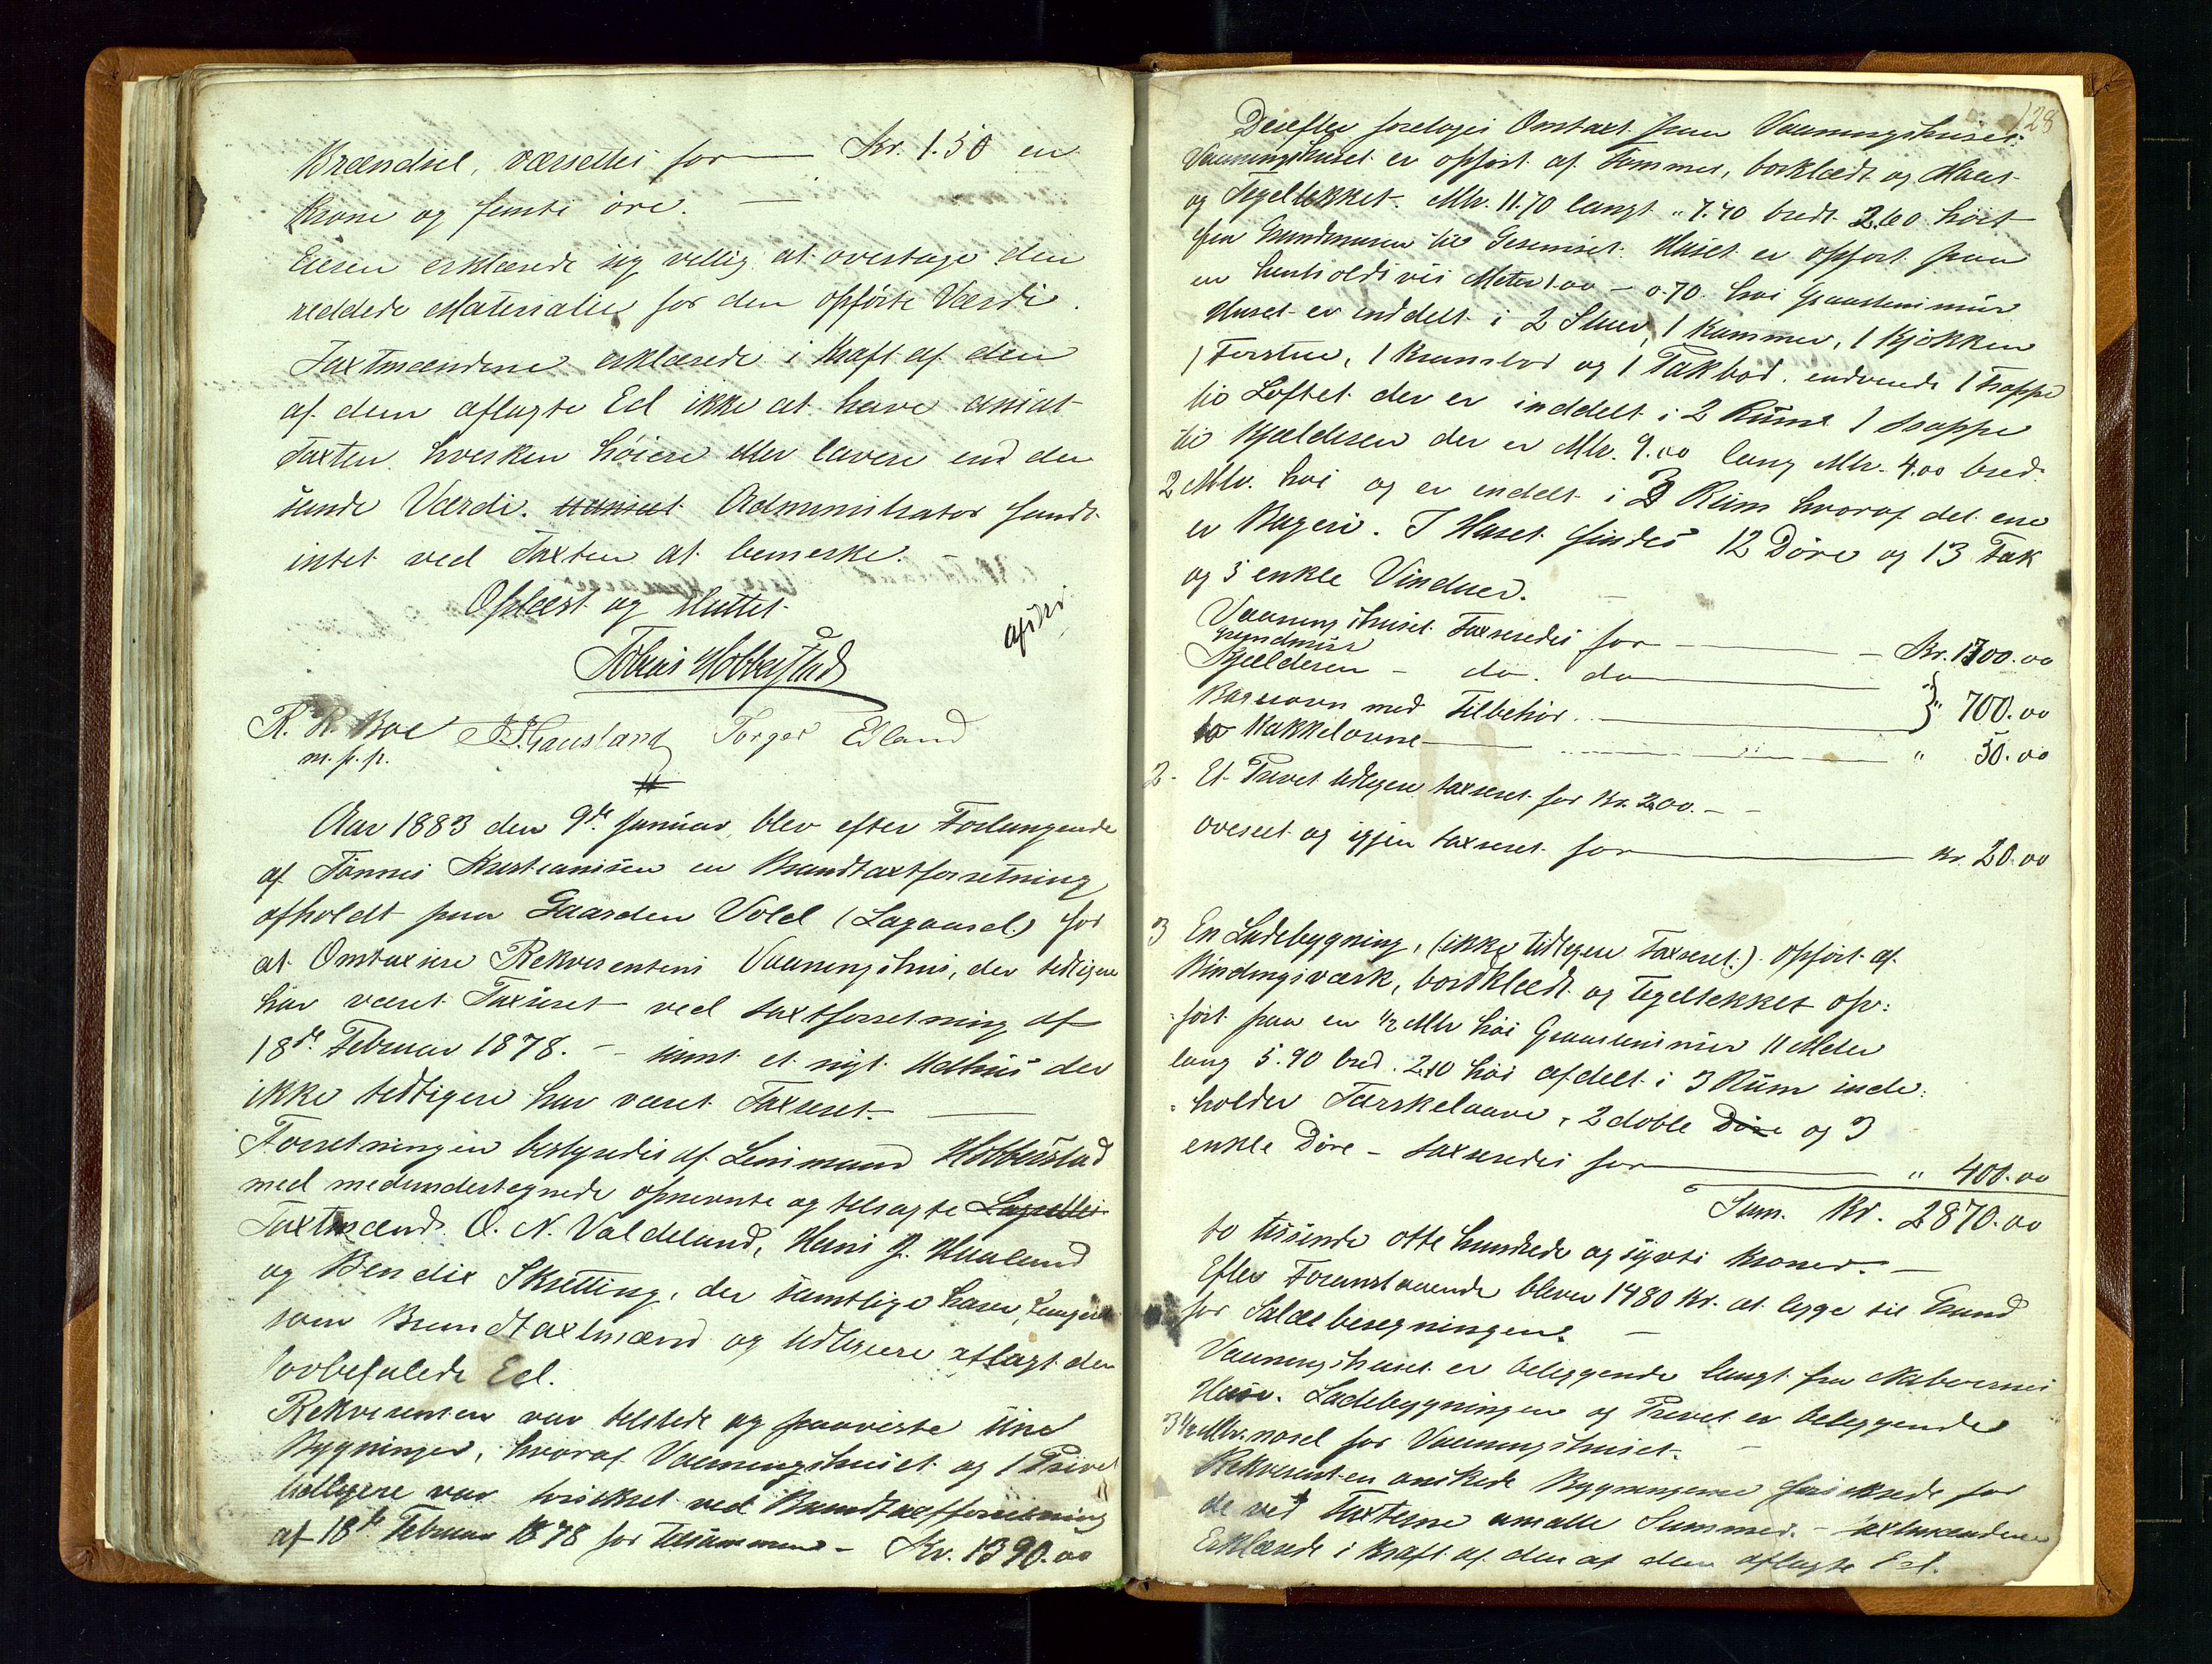 Brændsel, værsettes for — Kr. 1.50 en
Krone og femti öre. —
Eieren erklærede sig villig at overtage den
reddede Materialie for den opførte Værdi.
Taxtmændene erklærede i Kraft af den
af dem aflagte Ed ikke at have ansat
Taxten hverken høiere eller lavere end den
sande Værdi. Administrator fandt
intet ved Taxten at bemerke.
Oplæst og sluttet.
Tobias Hobberstad
R. R. Boe J. J. Gausland Torger Edland
m. p. p.
Aar 1883 den 9de Januar, blev efter Forlangende
af Tönnes Kristiansen en Brandtaxtforretning
afholdt paa Gaarden Vold (Lagaard) for
at Omtaxere Rekvirentens Vaaningshus, der tidligere
har været Taxeret ved Taxtforretning af
18de Februar 1878. — samt et nyt Udhus der
ikke tidligere har været Taxeret. —
Forretningen bestyredes af Lensmand Hobberstad
med medundertegnede opnevnte og tilsagte Lagrettes
Taxtmænd O. N. Valdeland, Hans J. Hualand
og Bendix Skretting, der samtlige have fungeret
som Brandtaxtmænd og tidligere aflagt den
lovbefalede Ed.
Rekvirenten var tilstede og paaviste sine
Bygninger, hvoraf Vaaningshuset og 1 Privet
tidligere var forsikret ved Brandtaxtforretning
af 18de Februar 1878 for tilsammen — Kr. 1390.00
128
Derefter foretoges Omtaxt paa Vaaningshuset:
Vaaningshuset er opført af Tømmer, bordklædt og Malet
og Tegeltekket. Mtr. 11.70 langt " 7.70 bredt 2.60 høit
fra Grundmuren til Gesemset. Huset er opført paa
en henholdsvis Meter 1.00 – 0.70 høi Graastensmür
Huset er inddelt i 2 Stuer, 1 Kammer, 1 Kjøkken
1 Forstue, 1 Krambod og 1 Pakbod. endvende 1 Trappe
til Loftet der er inddelt i 2 Rüm 1 Trappe
til Kjælderen der er Mtr. 9.00 lang Mtr. 4.00 bred
2 Mtr. høi og er inddelt i 2 Rüm hvoraf det ene
er Bageri. I Huset findes 12 Döre og 13 Fak
og 5 enkle Vinduer. —
Vaaningshuset Taxeredes for — Kr. 1700.00
Grundmür
Kjælderen – do. do —
Bagerovn med Tilbehör — } " 700.00
to Kakkelovne — " 50.00
2- Et Privet tidligere taxeret for Kr. 200. —
overseet og igjen taxeret for — Kr. 20.00
3 En Ladebygning, (ikke tidligere Taxeret.) opført af
Bindingsværk, bordklædt og Tegeltekket op:
ført paa en 1/2 Mtr høi Graastensmür 11 Meter
lang 5.90 bred 2.10 høi afdelt i 3 Rüm inde:
holder Tærskelaave, 2 doble Döre og 3
enkle Döre – taxeredes for — " 400.00
Sum. Kr. 2870.00
to tusinde otte hundrede og sytti Kroner. —
Efter Foranstaaende bliver 1480 Kr. at legge til Grund
for Salærberegningen. —
Vaaningshuset er beliggende langt fra Naboernes
Huse. Ladebygningen og Privet er beliggende
3 1/2 Mtr. nord for Vaaningshuset. —
Rekvirenten ønskede Bygningerne forsikrede for
de ved Taxterne ansatte Summer. – Taxtmændene
Erklærede i Kraft af den af dem aflagte Ed.